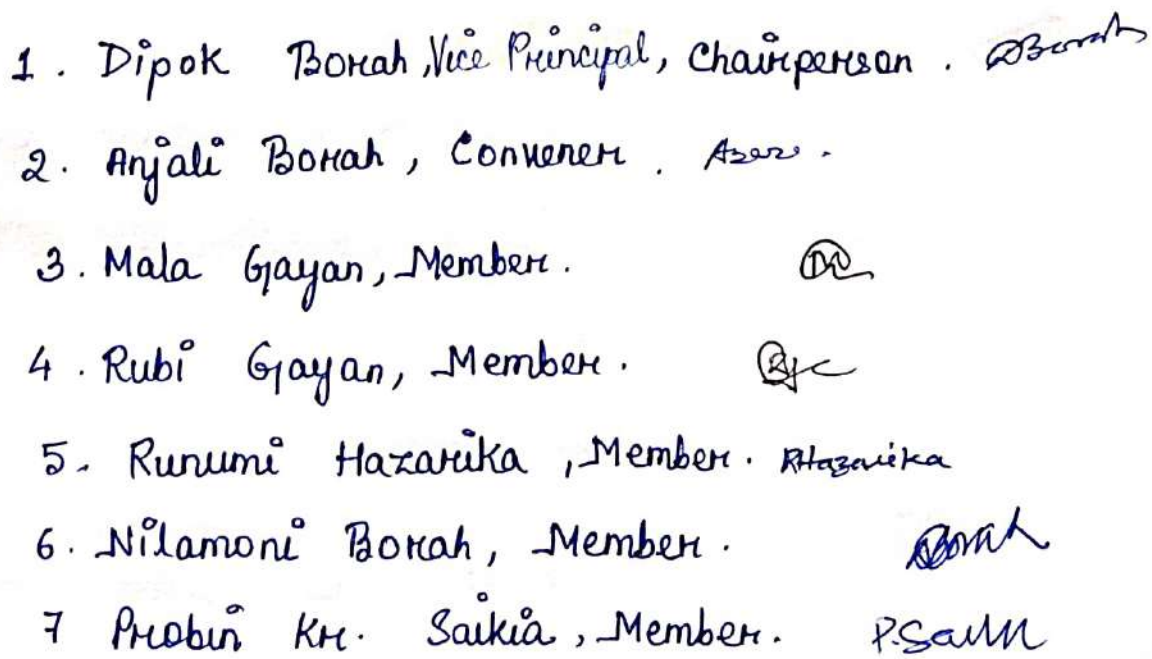 1. Dipok Borah, Vice Principal, Chairperson. DBorah
2. Anjali Borah, Convener.
3. Mala Gayan, Member.
4. Rubi Gayan, Member.
5. Runumi Hazarika, Member. RHazarika
6. Nilamoni Borah, Member. NBorah
7 Probin Kr. Saikia, Member. P.Saikia